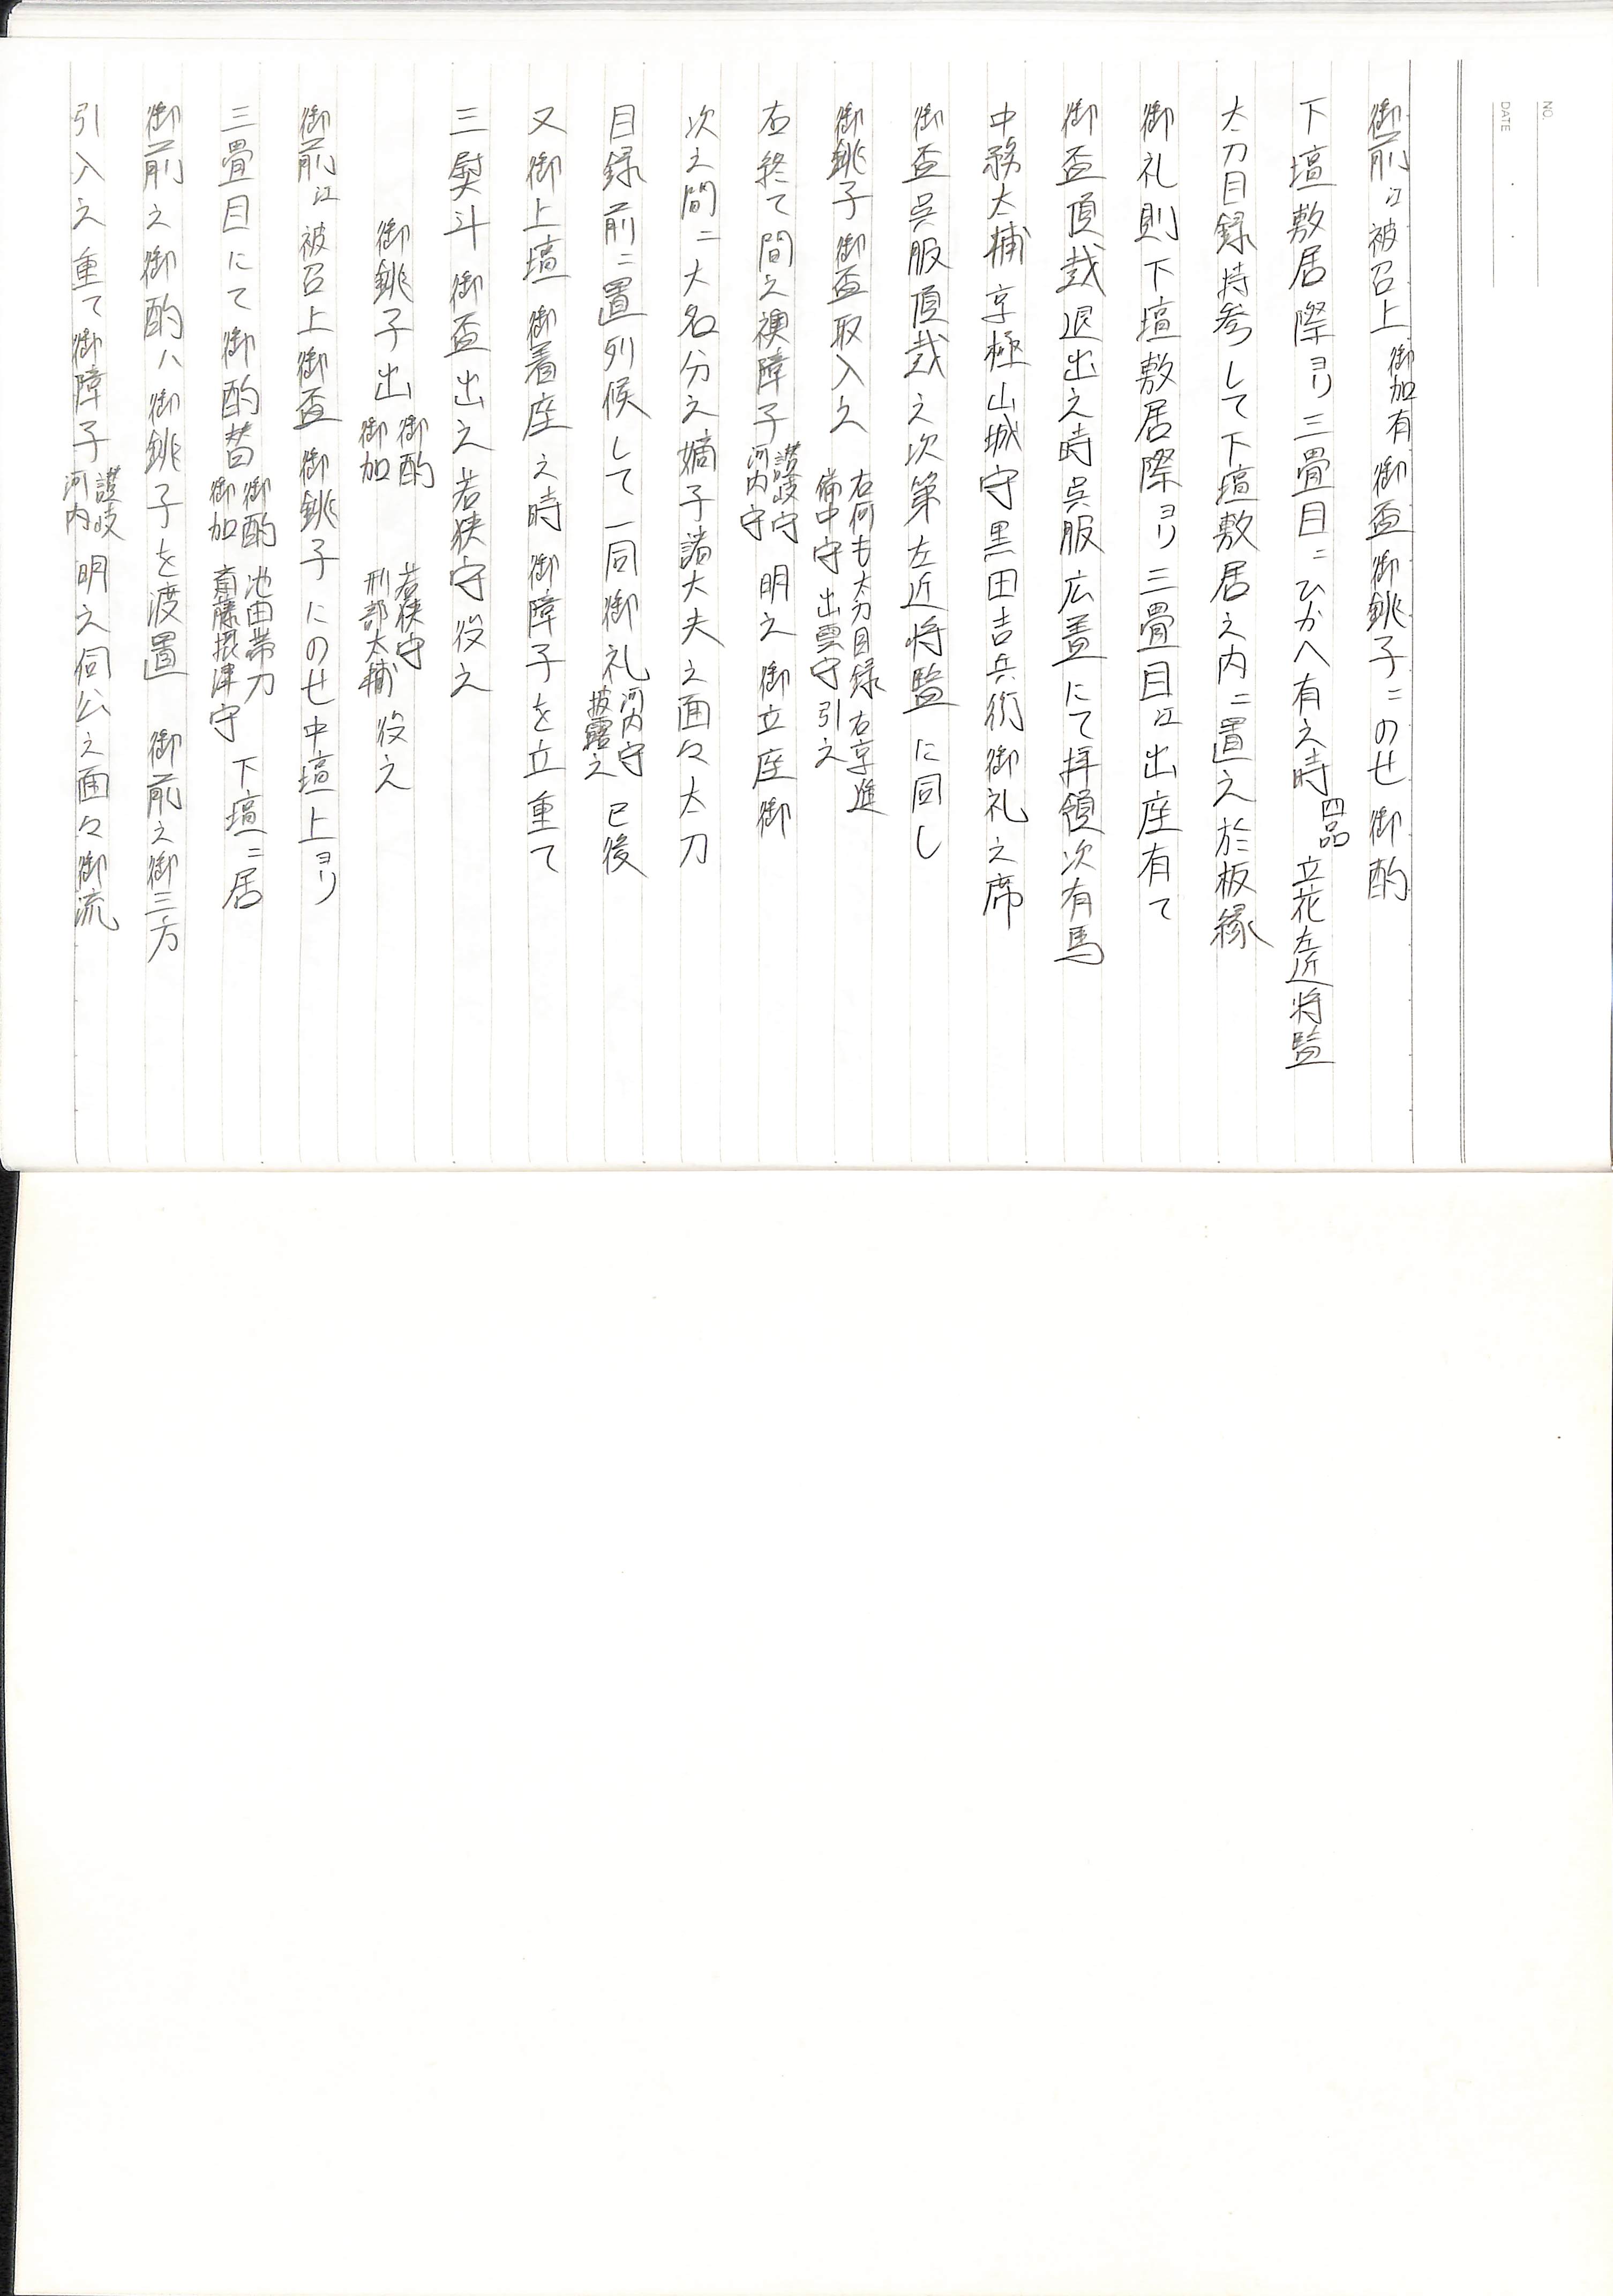 NO.
DATE
御前江被召上御加有御盃御銚子ニのせ御酌
下壇敷居際ゟ三畳目ニひかへ有之時四品立花左近将監
太刀目録持参して下壇敷居之内ニ置之於板縁
御礼則下壇敷居際ゟ三畳目江出座有て
御盃頂戴退出之時呉服広蓋にて拝領次有馬
中務太輔京極山城守黒田吉兵衛御礼之席
御盃呉服頂戴之次第左近将監に同し
御銚子御盃取入之右何も太刀目録右京進備中守出雲守引之
右終て間之襖障子讃岐守河内守明之御立座御
次之間ニ大名分之嫡子諸大夫之面々太刀
目録前ニ置列候して一同御礼河内守披露之已後
又御上壇御着座之時御障子を立重て
三熨斗御盃出之若狭守役之
御銚子出御酌御加若狭守刑部太輔役之
御前江被召上御盃御銚子にのせ中壇上ゟ
三畳目にて御酌替御酌御加池田帯刀斎藤摂津守下壇ニ居
御前之御酌ハ御銚子を渡置御前之御三方
引入之重て御障子讃岐河内明之伺公之面々御流